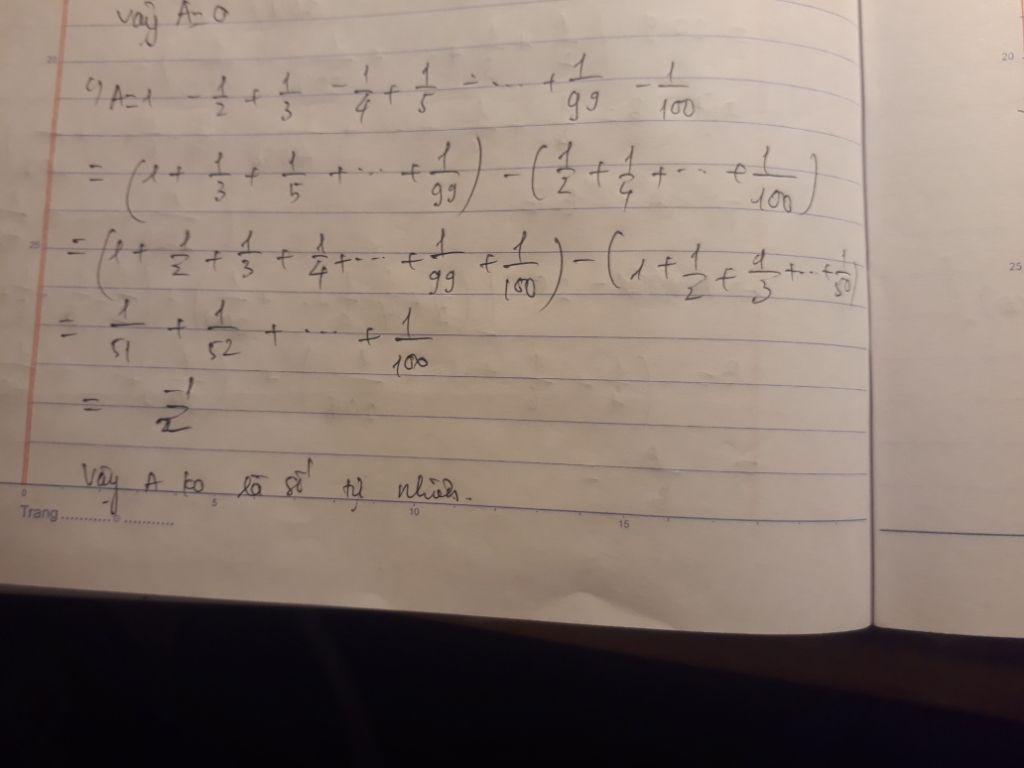 vậy A=0
c) A=1 - 1/2 + 1/3 - 1/4 + 1/5 - ... + 1/99 - 1/100
= (1 + 1/3 + 1/5 + ... + 1/99) - (1/2 + 1/4 + ... + 1/100)
= (1 + 1/2 + 1/3 + 1/4 + ... + 1/99 + 1/100) - (1 + 1/2 + 1/3 + ... + 1/50)
= 1/51 + 1/52 + ... + 1/100
= -1/2
Vậy A ko là số tự nhiên.
Trang
0 5 10 15
20
25
20
25